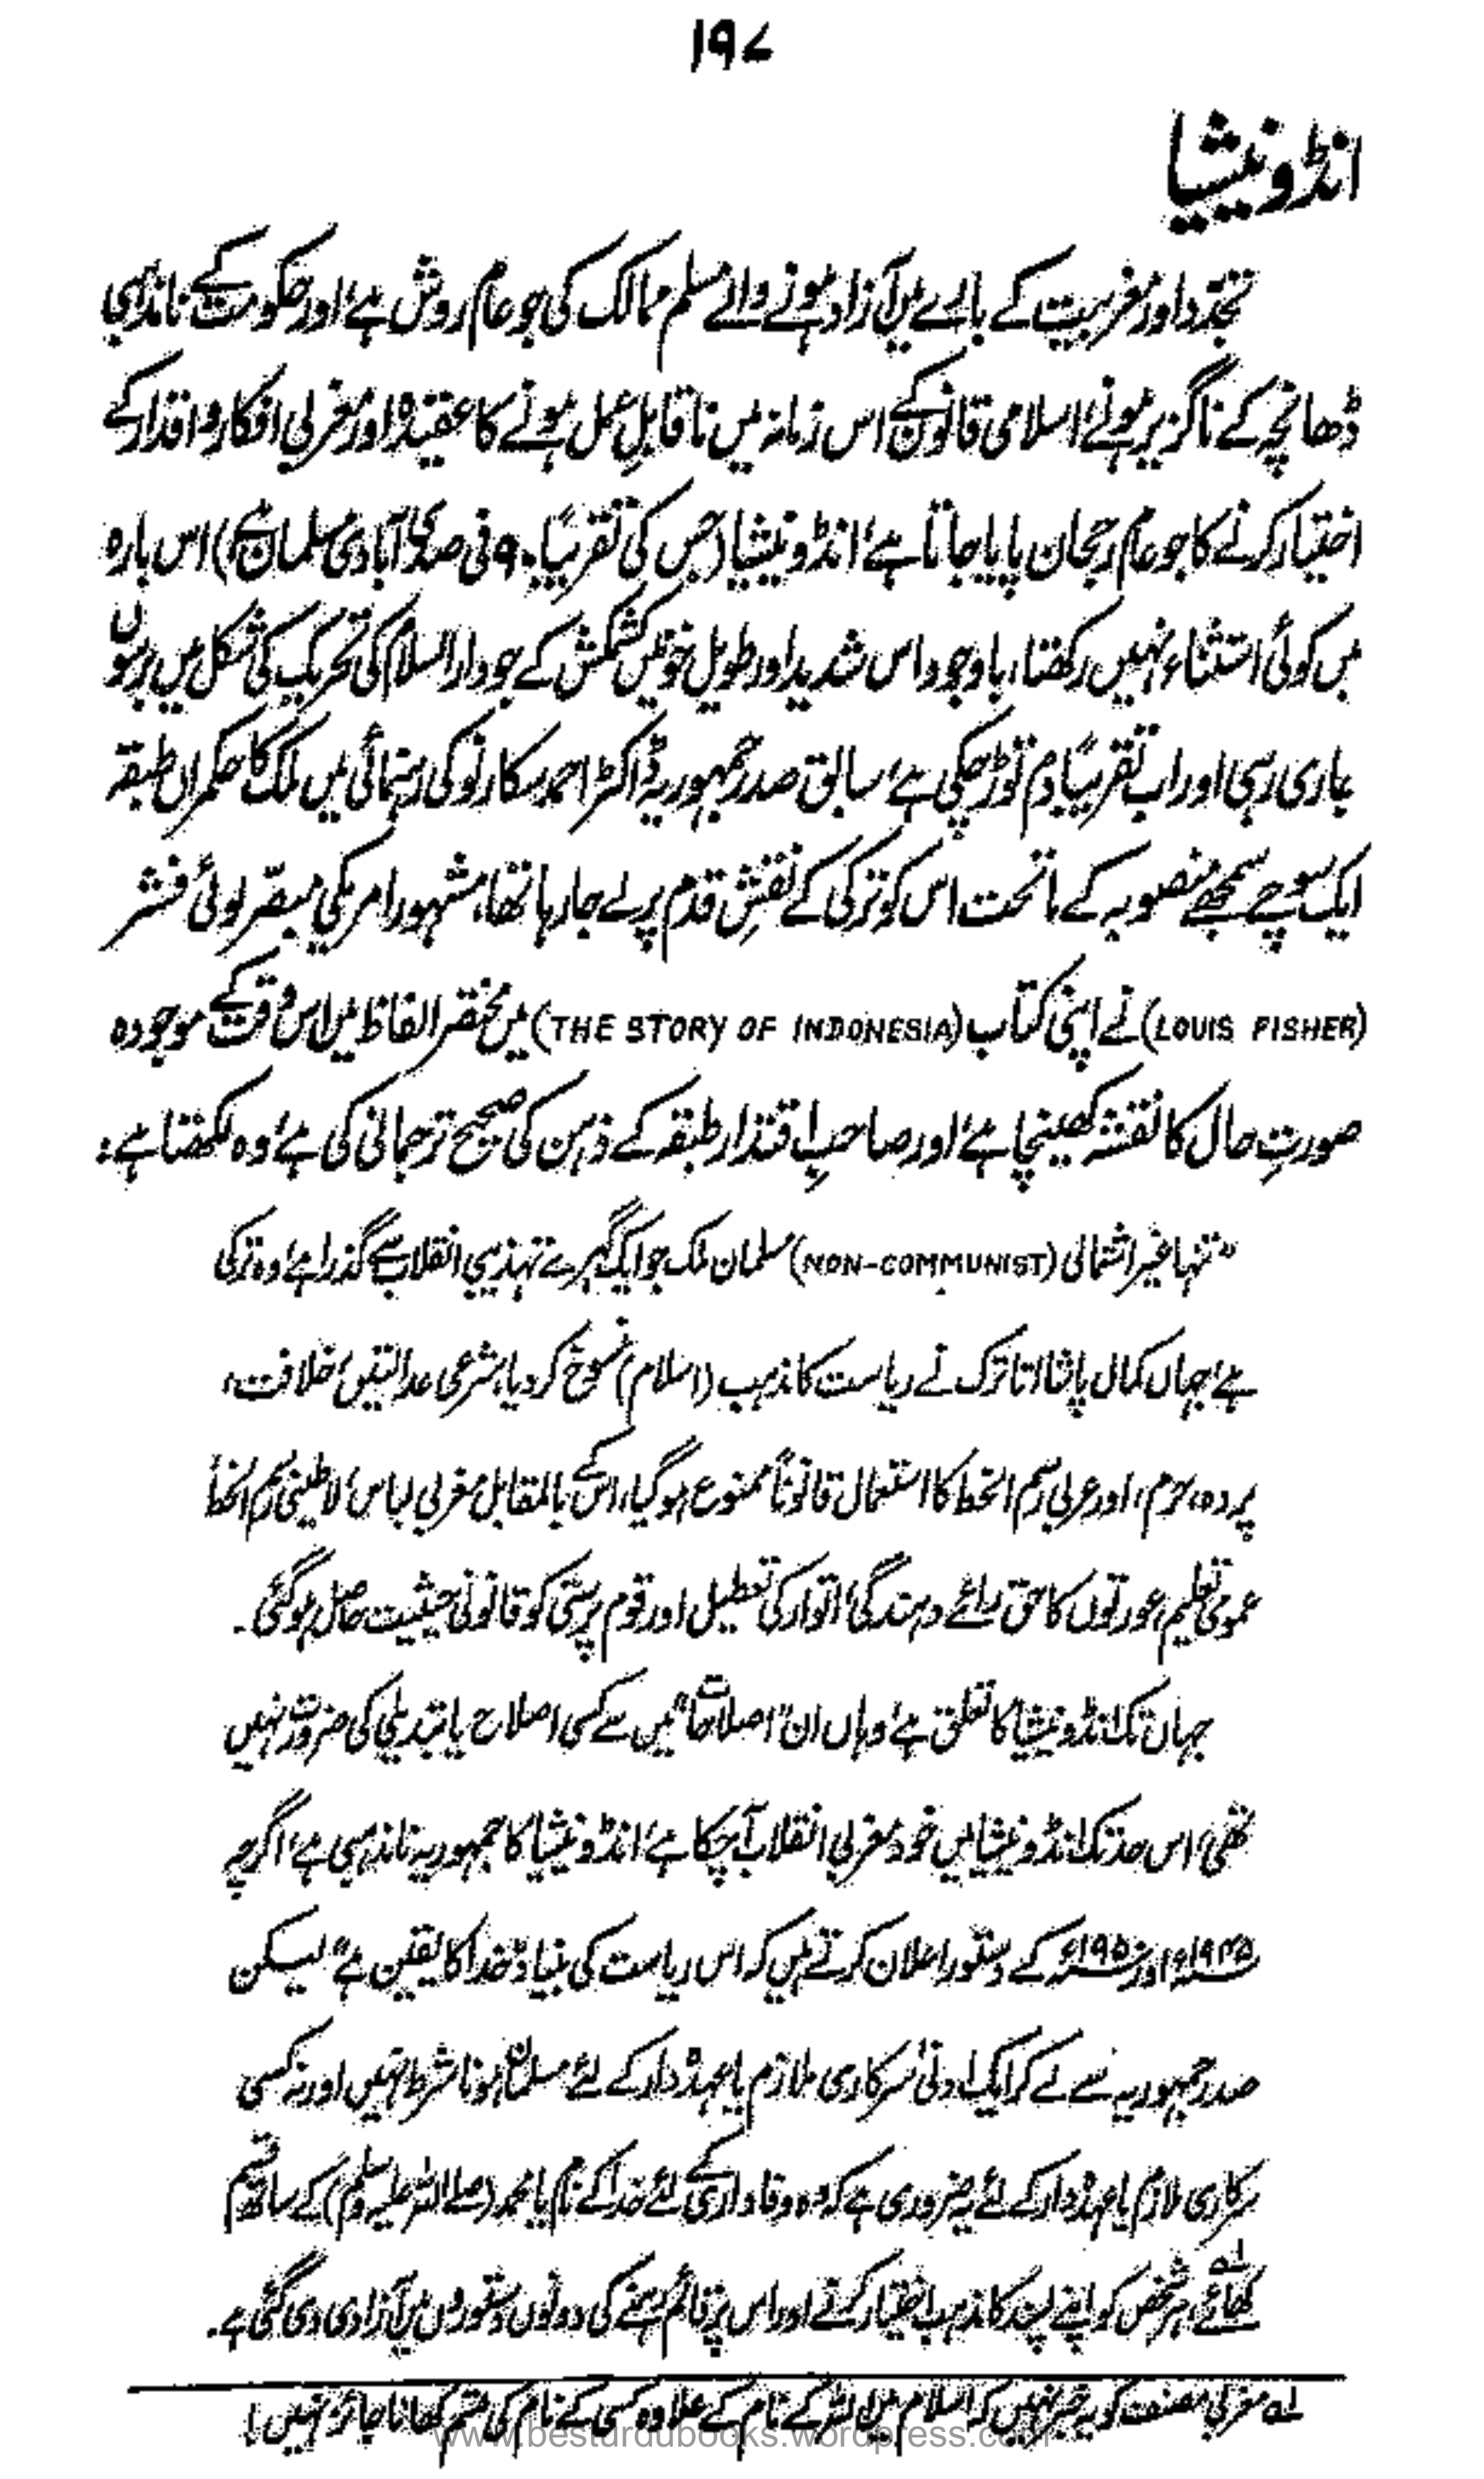 ۱۹۷
انڈونیشیا
تجدّد اور مغربیت کے بارے میں آزاد ہونے والے مسلم ممالک کی جو عام روش ہے، اور حکومت کے نامذہبی
ڈھانچہ کے ناگزیر ہونے، اسلامی قانون کے اس زمانہ میں ناقابلِ عمل ہونے کا عقیدہ اور مغربی افکار و اقدار کے
اختیار کرنے کا جو عام رجحان پایا جاتا ہے، انڈونیشیا (جس کی تقریباً ۹۰ فی صدی آبادی مسلمان ہے) اس بارہ
میں کوئی استثناء نہیں رکھتا، باوجود اس شدید اور طویل خونیں کشمکش کے جو دارالسلام کی تحریک کی شکل میں برسوں
جاری رہی اور اب تقریباً دم توڑ چکی ہے، سابق صدر جمہوریہ ڈاکٹر احمد سکارنو کی رہنمائی میں ملک کا حکمراں طبقہ
ایک سوچے سمجھے منصوبہ کے ماتحت اس کو ترکی کے نقشِ قدم پر لے جا رہا تھا، مشہور امریکی مبصّر لوئی فشر
(LOUIS FISHER) نے اپنی کتاب (THE STORY OF INDONESIA) میں مختصر الفاظ میں اس وقت کے موجودہ
صورتِ حال کا نقشہ کھینچا ہے، اور صاحبِ اقتدار طبقہ کے ذہن کی صحیح ترجمانی کی ہے، وہ لکھتا ہے:
"تنہا غیر اشتمالی (NON-COMMUNIST) مسلمان ملک جو ایک گہرے تہذیبی انقلاب سے گذرا ہے، وہ ترکی
ہے، جہاں کمال پاشا اتاترک نے ریاست کا مذہب (اسلام) منسوخ کر دیا، شرعی عدالتیں، خلافت،
پردہ، حرم، اور عربی رسم الخط کا استعمال قانوناً ممنوع ہو گیا، اس کے بالمقابل مغربی لباس، لاطینی رسم الخط،
عمومی تعلیم، عورتوں کا حق رائے دہندگی، اتوار کی تعطیل اور قوم پرستی کو قانونی حیثیت حاصل ہو گئی۔
جہاں تک انڈونیشیا کا تعلق ہے، وہاں ان "اصلاحات" میں سے کسی اصلاح یا تبدیلی کی ضرورت نہیں
تھی، اس حد تک انڈونیشیا میں خود مغربی انقلاب آ چکا ہے، انڈونیشیا کا جمہوریہ نامذہبی ہے، اگرچہ
۱۹۴۵ء اور ۱۹۵۰ء کے دستور اعلان کرتے ہیں کہ اس ریاست کی بنیاد "خدا کا یقین ہے" لیکن
صدر جمہوریہ سے لے کر ایک ادنیٰ سرکاری ملازم یا عہدہ دار کے لئے مسلمان ہونا شرط نہیں اور نہ کسی
سرکاری ملازم یا عہدہ دار کے لئے یہ ضروری ہے کہ وہ وفاداری کے لئے خدا کے نام یا محمد (صلے اللہ علیہ وسلم) کے ساتھ قسم
کھائے، ہر شخص کو اپنے پسند کا مذہب اختیار کرنے اور اس پر قائم رہنے کی دونوں دستوروں میں آزادی دی گئی ہے۔
لہ مغربی مصنف کو یہ خبر نہیں کہ اسلام میں اللہ کے نام کے علاوہ کسی کے نام کی قسم کھانا جائز نہیں!
www.besturdubooks.wordpress.com